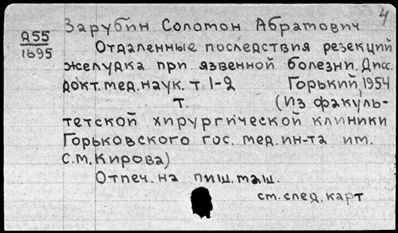 4
Зарубин Соломон Абрамович
Д55
1695
Отдаленные последствия резекций
желудка при язвенной болезни. Дисс.
докт. мед. наук. т 1-2 Горький, 1954
т. (Из факуль-
тетской хирургической клиники
Горьковского гос. мед. ин-та им.
С.М. Кирова)
Отпеч. на пиш. маш.
см. след. карт